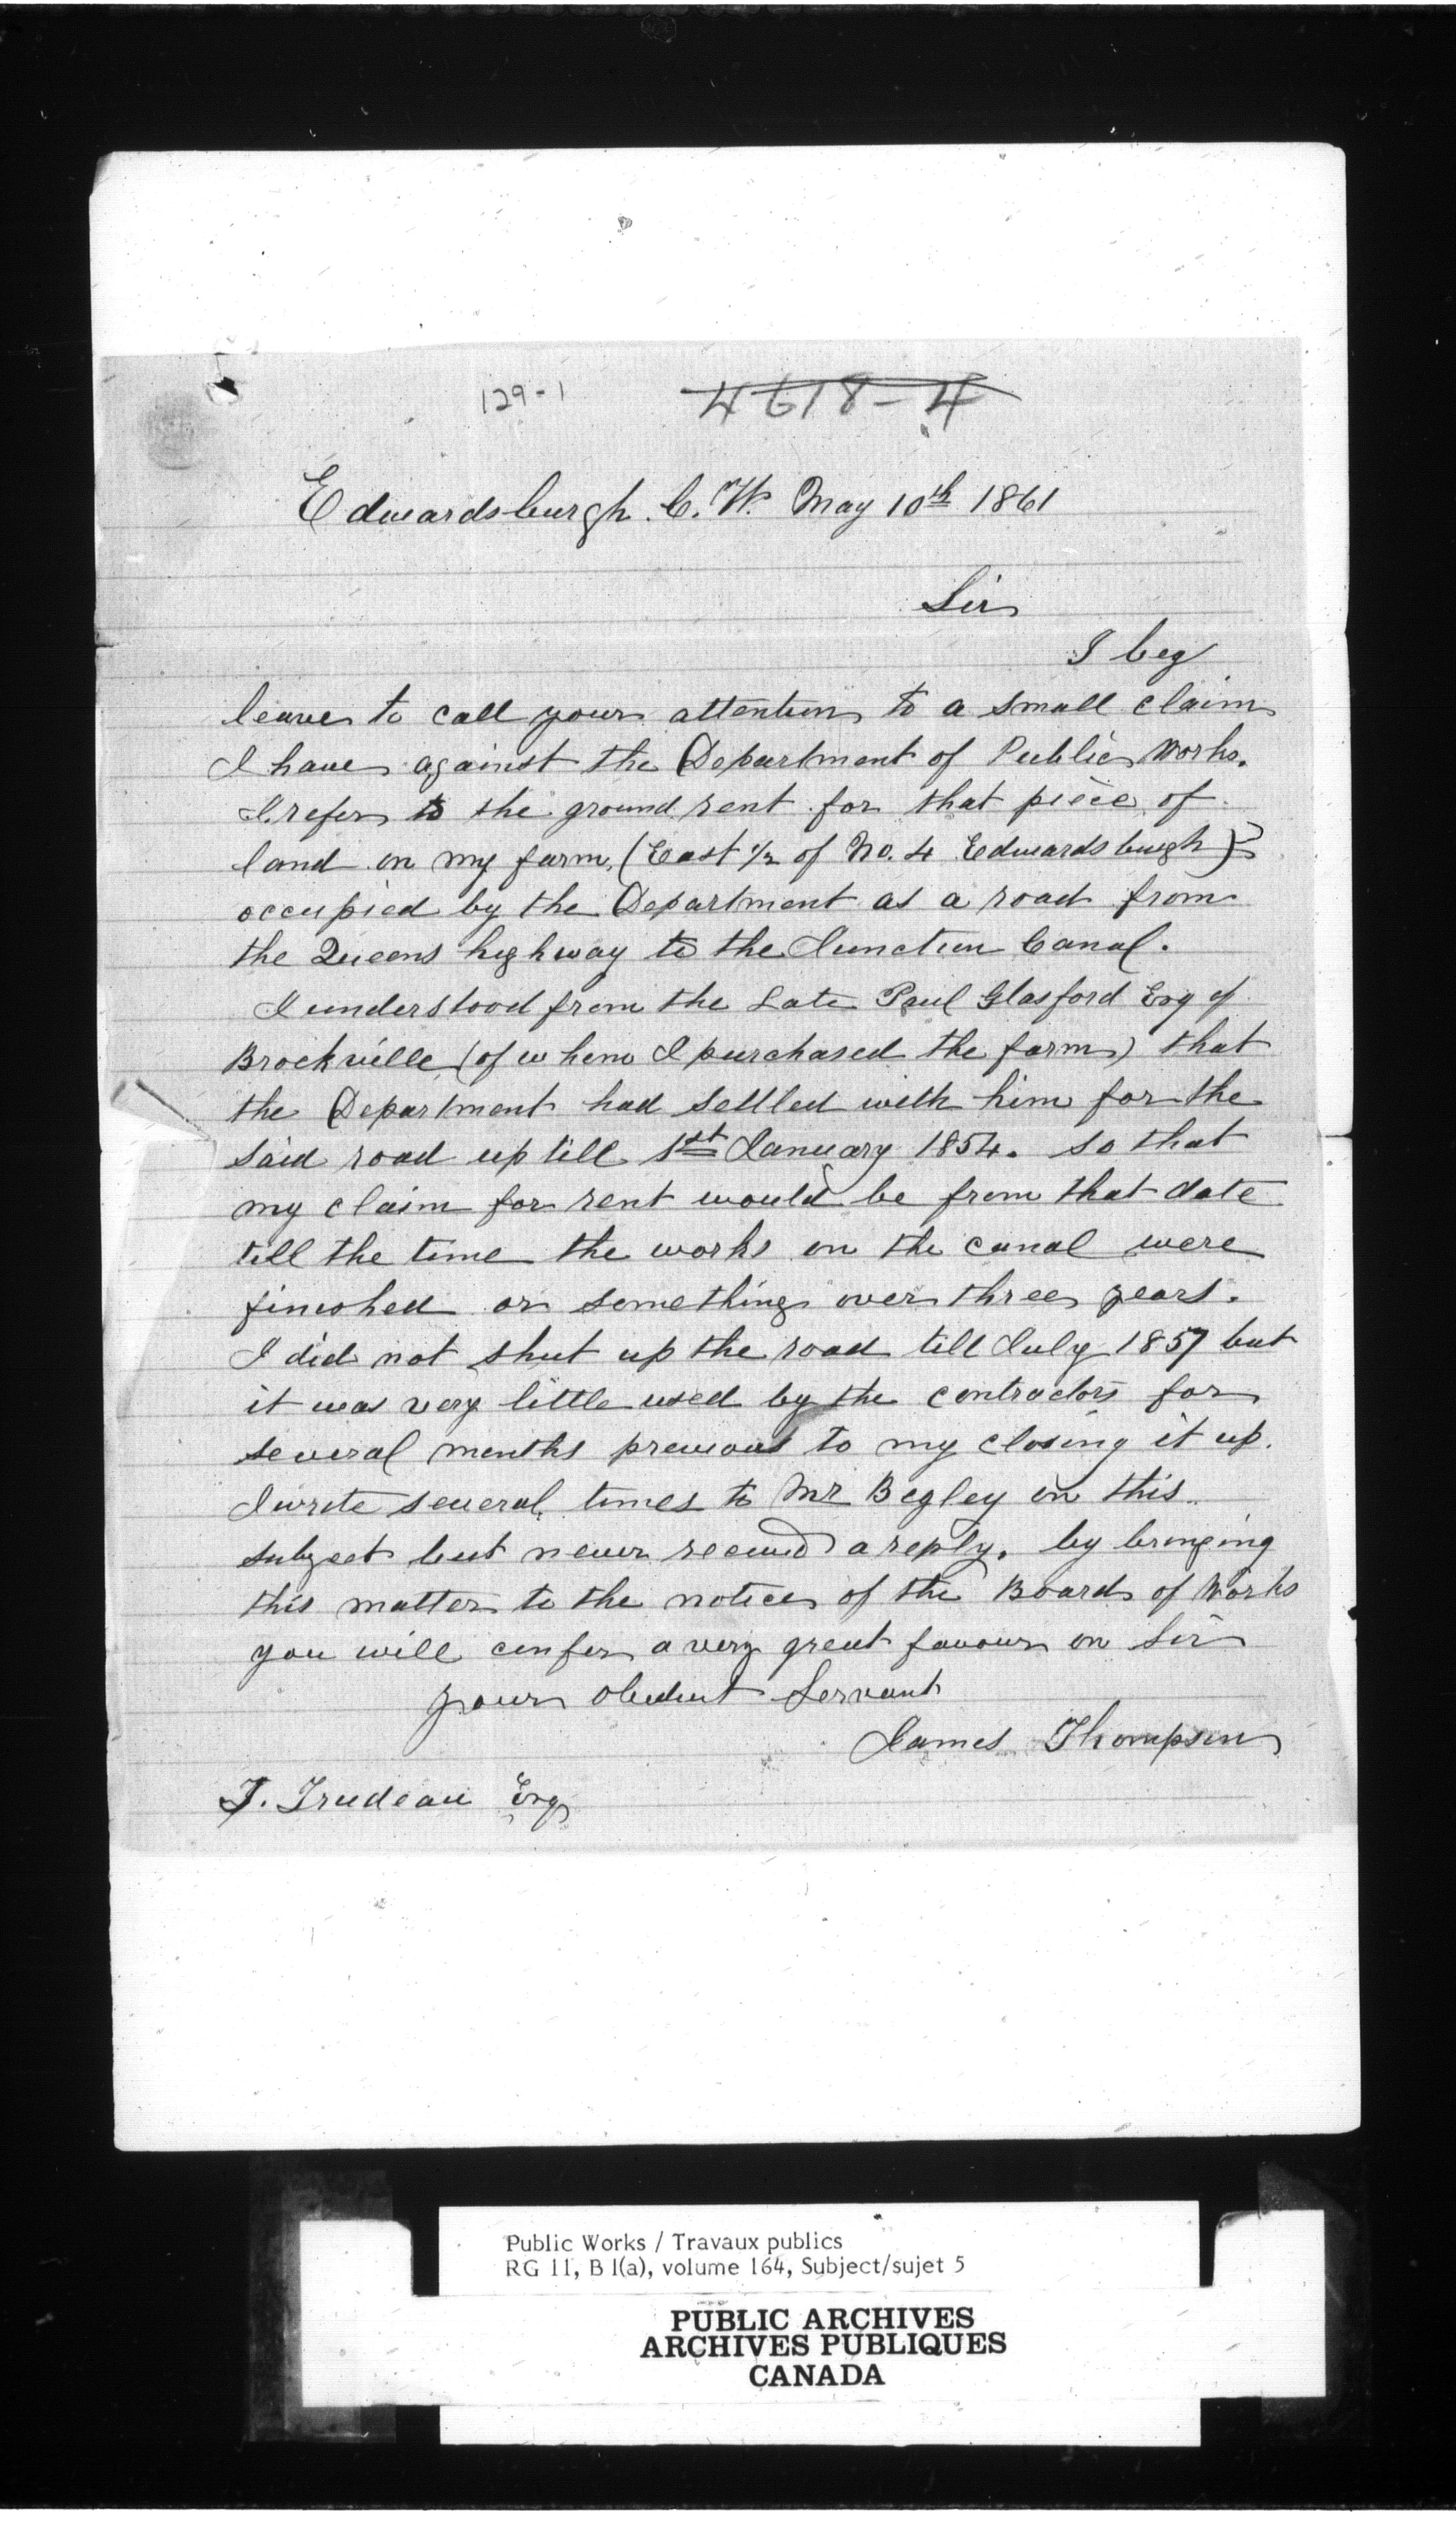 129-1 4618-4
Edwardsburgh. C. W. May 10th 1861
Sir
I beg
leave to call your attention to a small claim
I have against the Department of Public Works.
I refer to the ground rent for that piece of
land on my farm, (East 1/2 of No. 4 Edwardsburgh)
occupied by the Department as a road from
the Queens highway to the Junction Canal.
I understood from the Late Paul Glasford Esq of
Brockville (of whom I purchased the farm) that
the Department had settled with him for the
said road up till 1st January 1854. so that
my claim for rent would be from that date
till the time the works on the canal were
finished or something over three years.
I did not shut up the road till July 1857 but
it was very little used by the contractors for
several months previous to my closing it up.
I wrote several times to Mr Begley on this
subject but never received a reply. by bringing
this matter to the notice of the Board of Works
you will confer a very great favour on Sir
your obedient Servant
James Thompson
T. Trudeau Esq
Public Works / Travaux publics
RG 11, B 1(a), volume 164, Subject/sujet 5
PUBLIC ARCHIVES
ARCHIVES PUBLIQUES
CANADA